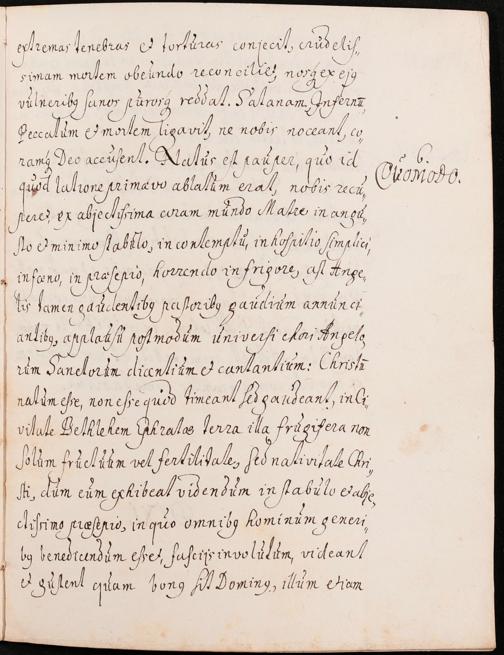 extremas tenebras et torturas conjecit, crudelis-
simam mortem obeundo reconciliet, nosq; ex ejq
vulneribq sanos purosq; reddat. Satanam, Infernū,
Peccatum et mortem ligavit, ne nobis noceant, co-
ramq; Deo accusent. Natus est pauper, quo id
quod latrone primævo ablatum erat, nobis recu-
peret, ex abjectissima coram mundo Matre in angu-
sto et minimo stabulo, in contemptu, in hospitio simplici,
in fœno, in præsepio, horrendo in frigore, ast Ange-
lis tamen gaudentibq pastoribq gaudium annunci-
antibq, applausu postmodum universi chori Angelo
rum Sanctorum dicentium et cantantium: Christū
natum esse, non esse quod timeant sed gaudeant, in Ci-
vitate Bethlehem Ephratæ terra illa frugifera non
solum fructuum vel fertilitate, sed nativitate Chri-
sti, dum eum exhibeat videndum in stabulo et abje-
ctissimo præsepio, in quo omnibq hominum generi-
bq benedicendum esset, fascijs involutum, videant
et gustent quam bonq sit Dominq, illum etiam
6.
Quomodo.